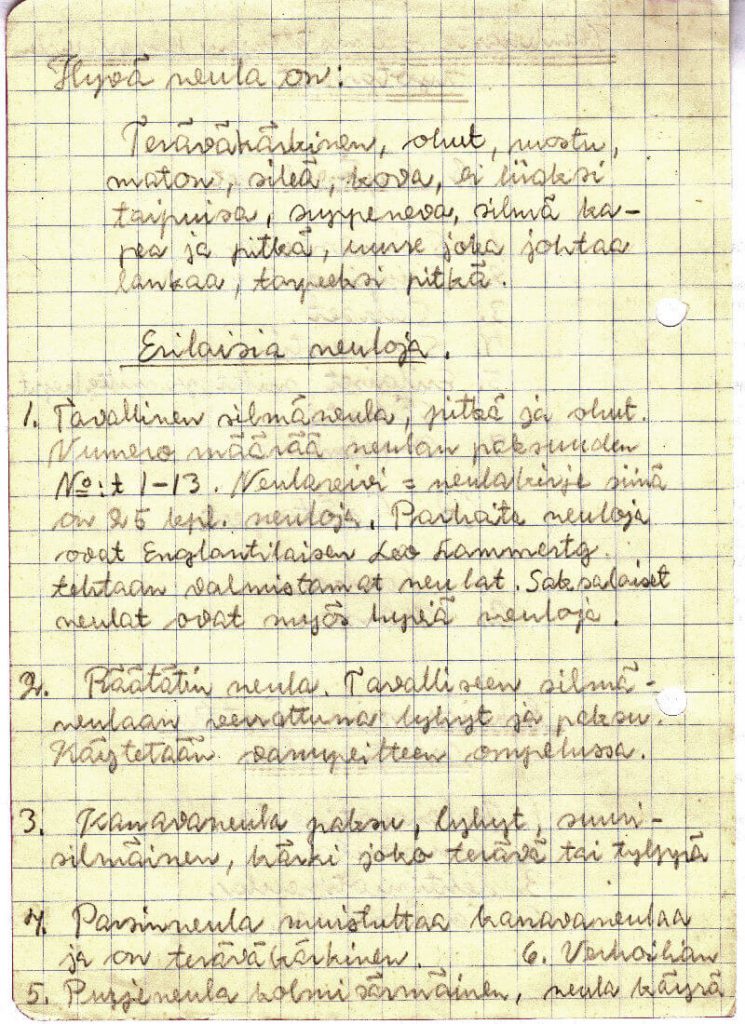 Hyvä neula on:
Teräväkärkinen, ohut, ruostu,
maton, sileä, kova, ei liiaksi
taipuisa, suppeneva, silmä ka-
pea ja pitkä, uurre joka johtaa
lankaa, tarpeeksi pitkä.
Erilaisia neuloja.
1. Tavallinen silmäneula, pitkä ja ohut.
Numero määrää neulan paksuuden
No:t 1-13. Neulareivi = neulakirje siinä
on 25 kpl. neuloja. Parhaita neuloja
ovat Englantilaisen Leo Lammertg.
tehtaan valmistamat neulat. Saksalaiset
neulat ovat myös hyviä neuloja.
2. Räätälin neula. Tavalliseen silmä-
neulaan verrattuna lyhyt ja paksu.
Käytetään vanupeitteen ompelussa.
3. Kanavaneula paksu, lyhyt, suuri-
silmäinen, kärki joko terävä tai tylppä
4. Parsinneula muistuttaa kanavaneulaa
ja on teräväkärkinen. 6. Verhoilian
5. Purjeneula kolmisärmäinen, neula käyrä